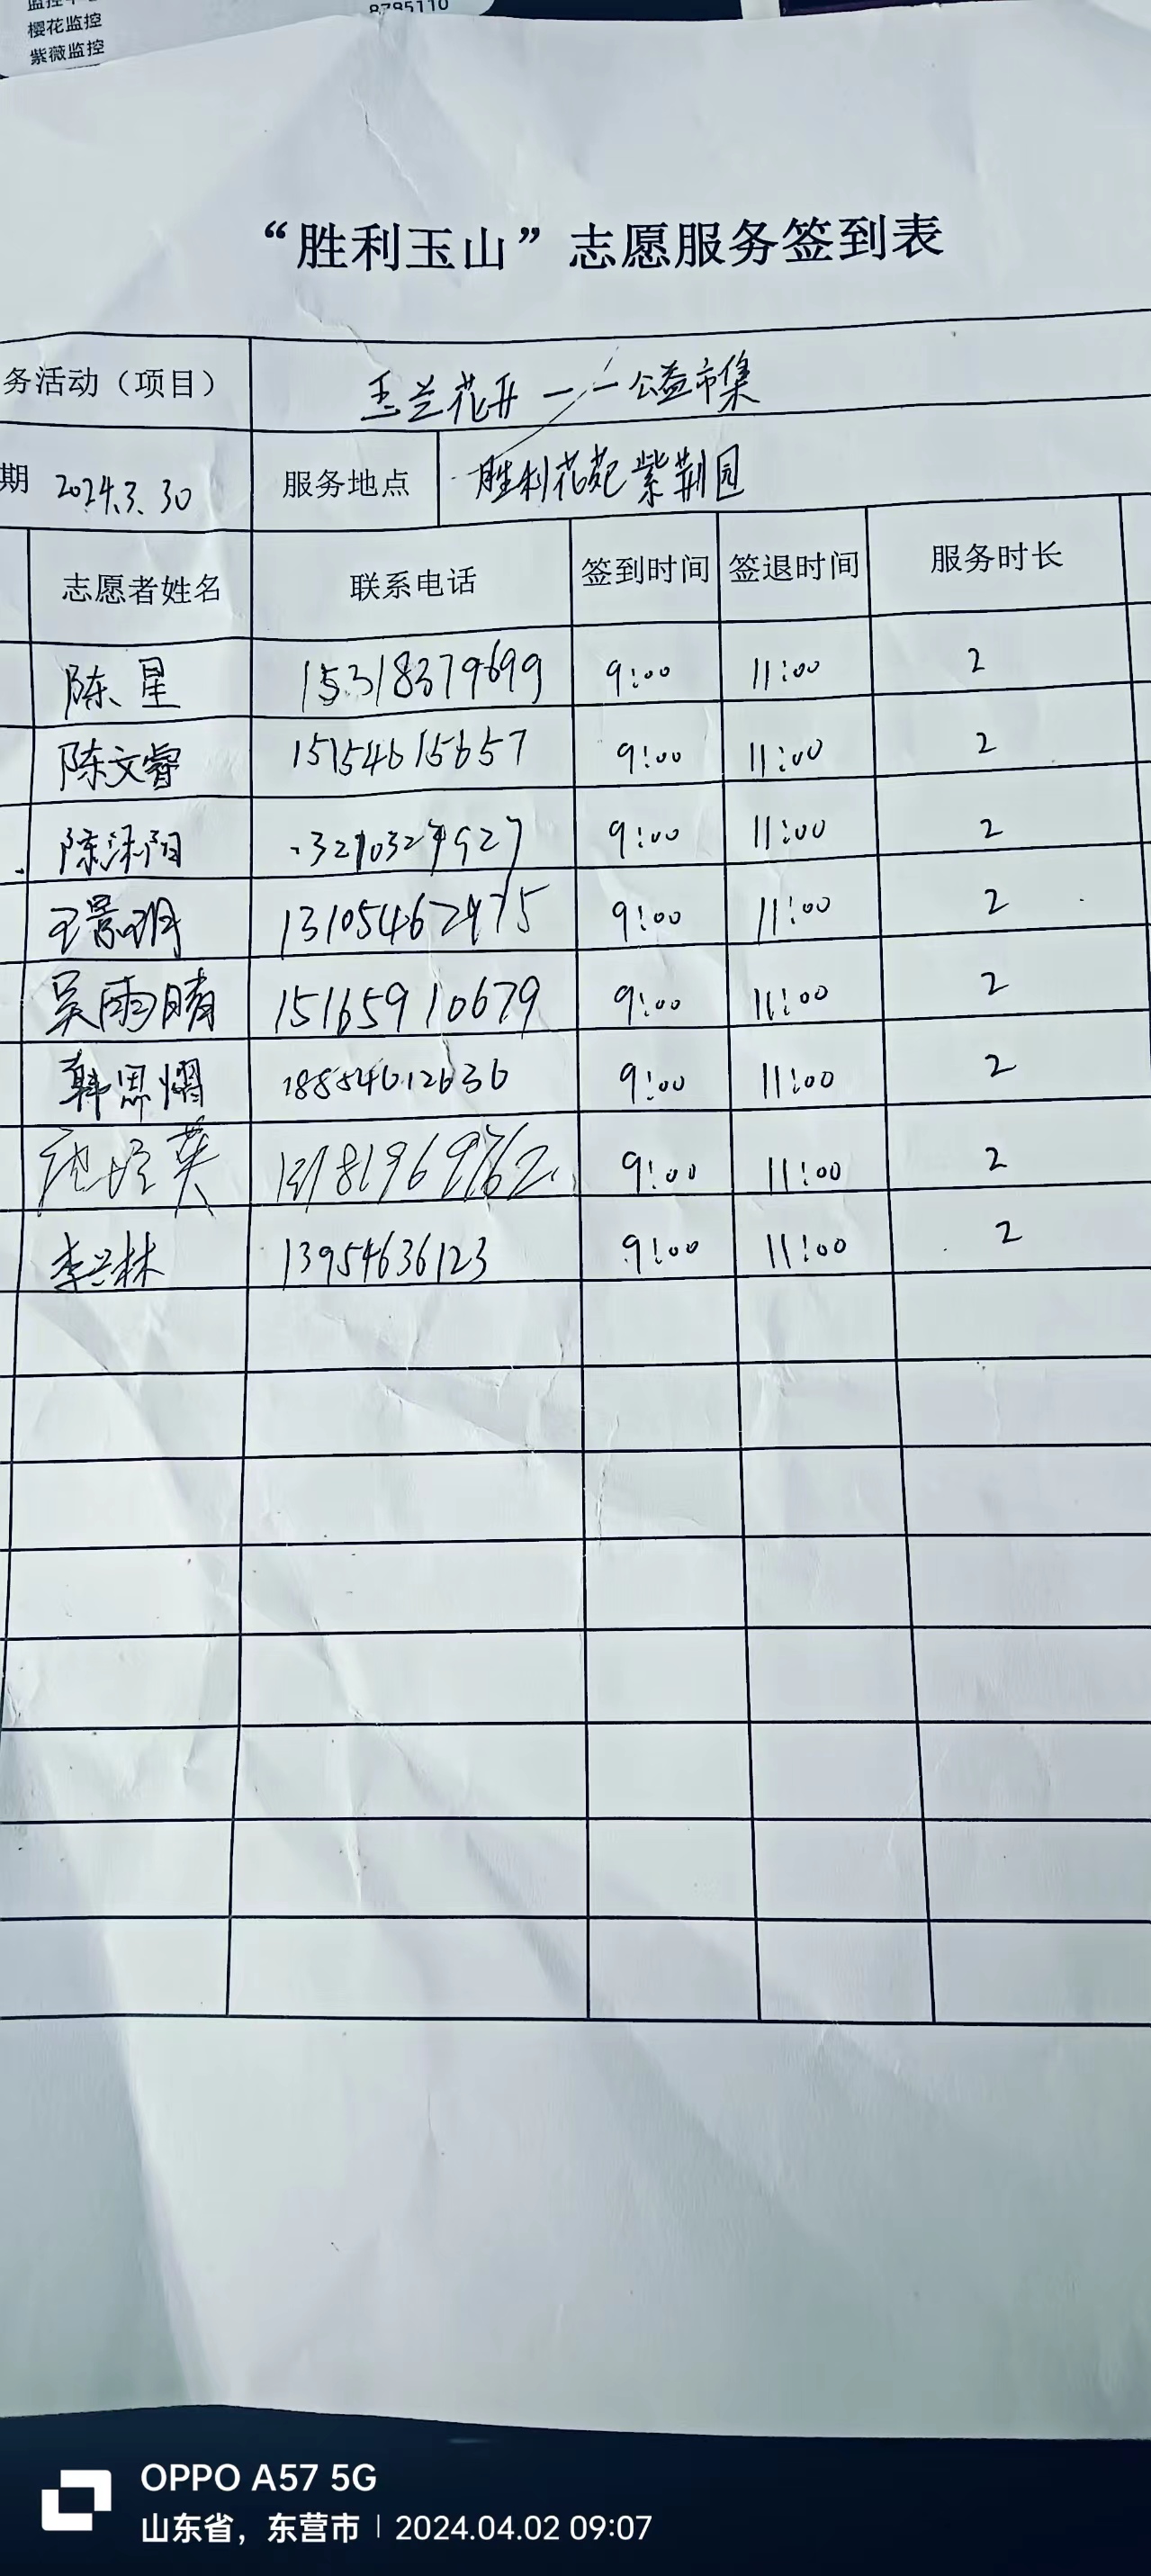 8785110
樱花监控
紫薇监控
“胜利玉山”志愿服务签到表
务活动（项目） 玉兰花开——公益市集
期 2024.3.30 服务地点 胜利花苑紫荆园
志愿者姓名 联系电话 签到时间 签退时间 服务时长
陈星 15318379699 9:00 11:00 2
陈文睿 15154615657 9:00 11:00 2
9:00 11:00 2
13105462975 9:00 11:00 2
吴雨晴 15165910679 9:00 11:00 2
韩思熠 18854612636 9:00 11:00 2
9:00 11:00 2
李兴林 13954636123 9:00 11:00 2
OPPO A57 5G
山东省，东营市 | 2024.04.02 09:07